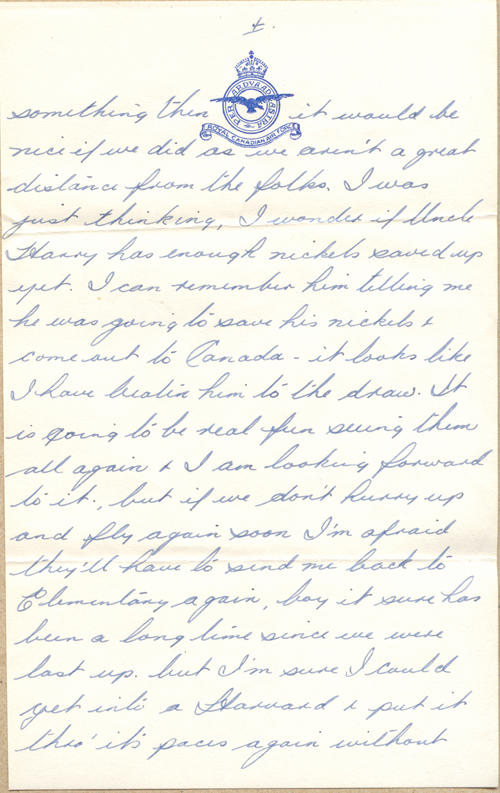 4.
PER ARDVA AD ASTRA
ROYAL CANADIAN AIR FORCE
something then it would be
nice if we did as we aren't a great
distance from the folks. I was
just thinking, I wonder if Uncle
Harry has enough nickels saved up
yet. I can remember him telling me
he was going to save his nickels &
come out to Canada - it looks like
I have beaten him to the draw. It
is going to be real fun seeing them
all again & I am looking forward
to it., but if we don't hurry up
and fly again soon I'm afraid
they'll have to send me back to
Elementary again, boy it sure has
been a long time since we were
last up. but I'm sure I could
get into a Harvard & put it
thro' it's paces again without